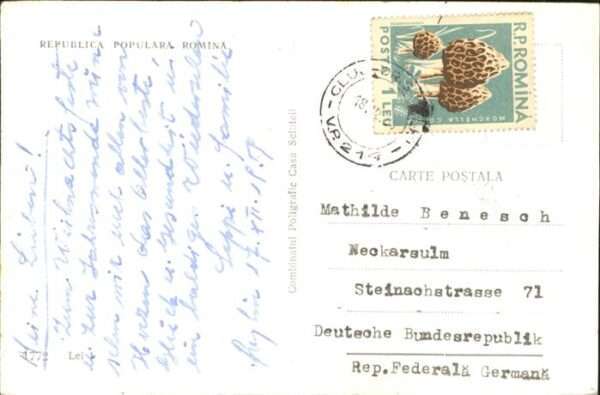 REPUBLICA POPULARA ROMINA
Meine Lieben!
Zum Weihnachtsfeste
u. zur Jahreswende wün-
schen wir euch allen von
Herzen das Allerbeste,
Glück u. Gesundheit u.
ein baldiges Wiedersehen
Seppi u. Familie
17.XII.
Lei
Combinatul Poligrafic Casa Scînteii
POSTA 1 LEU
R.P.ROMINA
MORCHELLA
CLUJ
18.
VR 214
CARTE POŞTALA
Mathilde Benesch
Neckarsulm
Steinachstrasse 71
Deutsche Bundesrepublik
Rep.Federală Germană